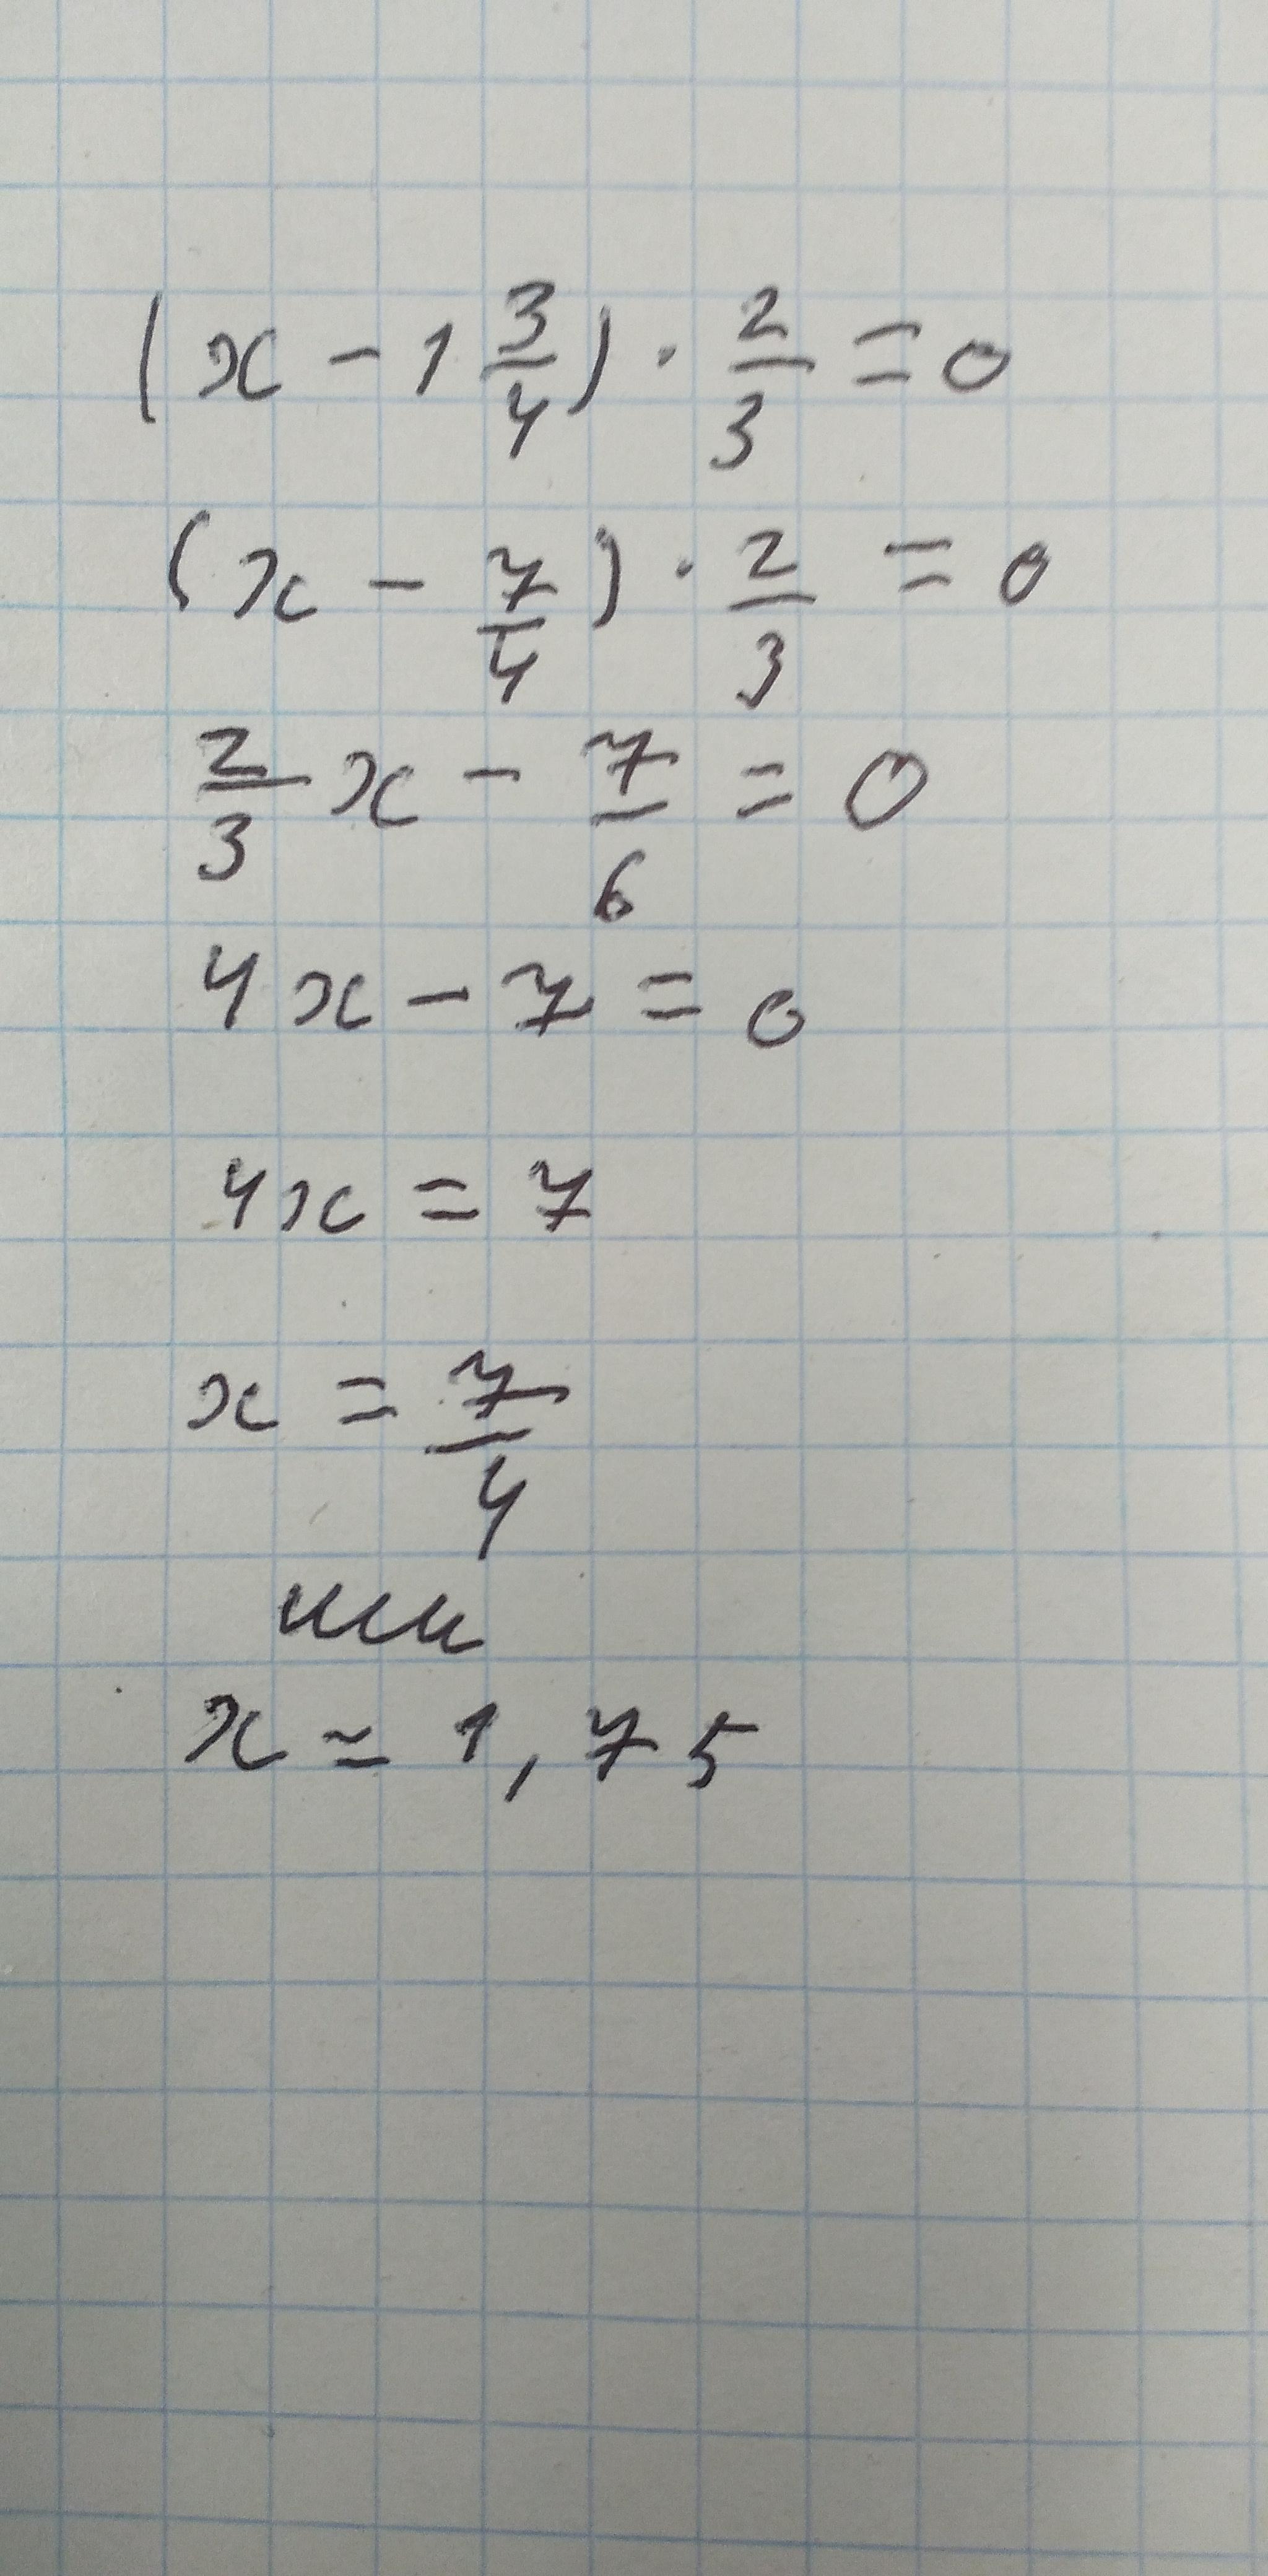 (x - 1 3/4) · 2/3 = 0
(x - 7/4) · 2/3 = 0
2/3 x - 7/6 = 0
4x - 7 = 0
4x = 7
x = 7/4
или
x = 1,75